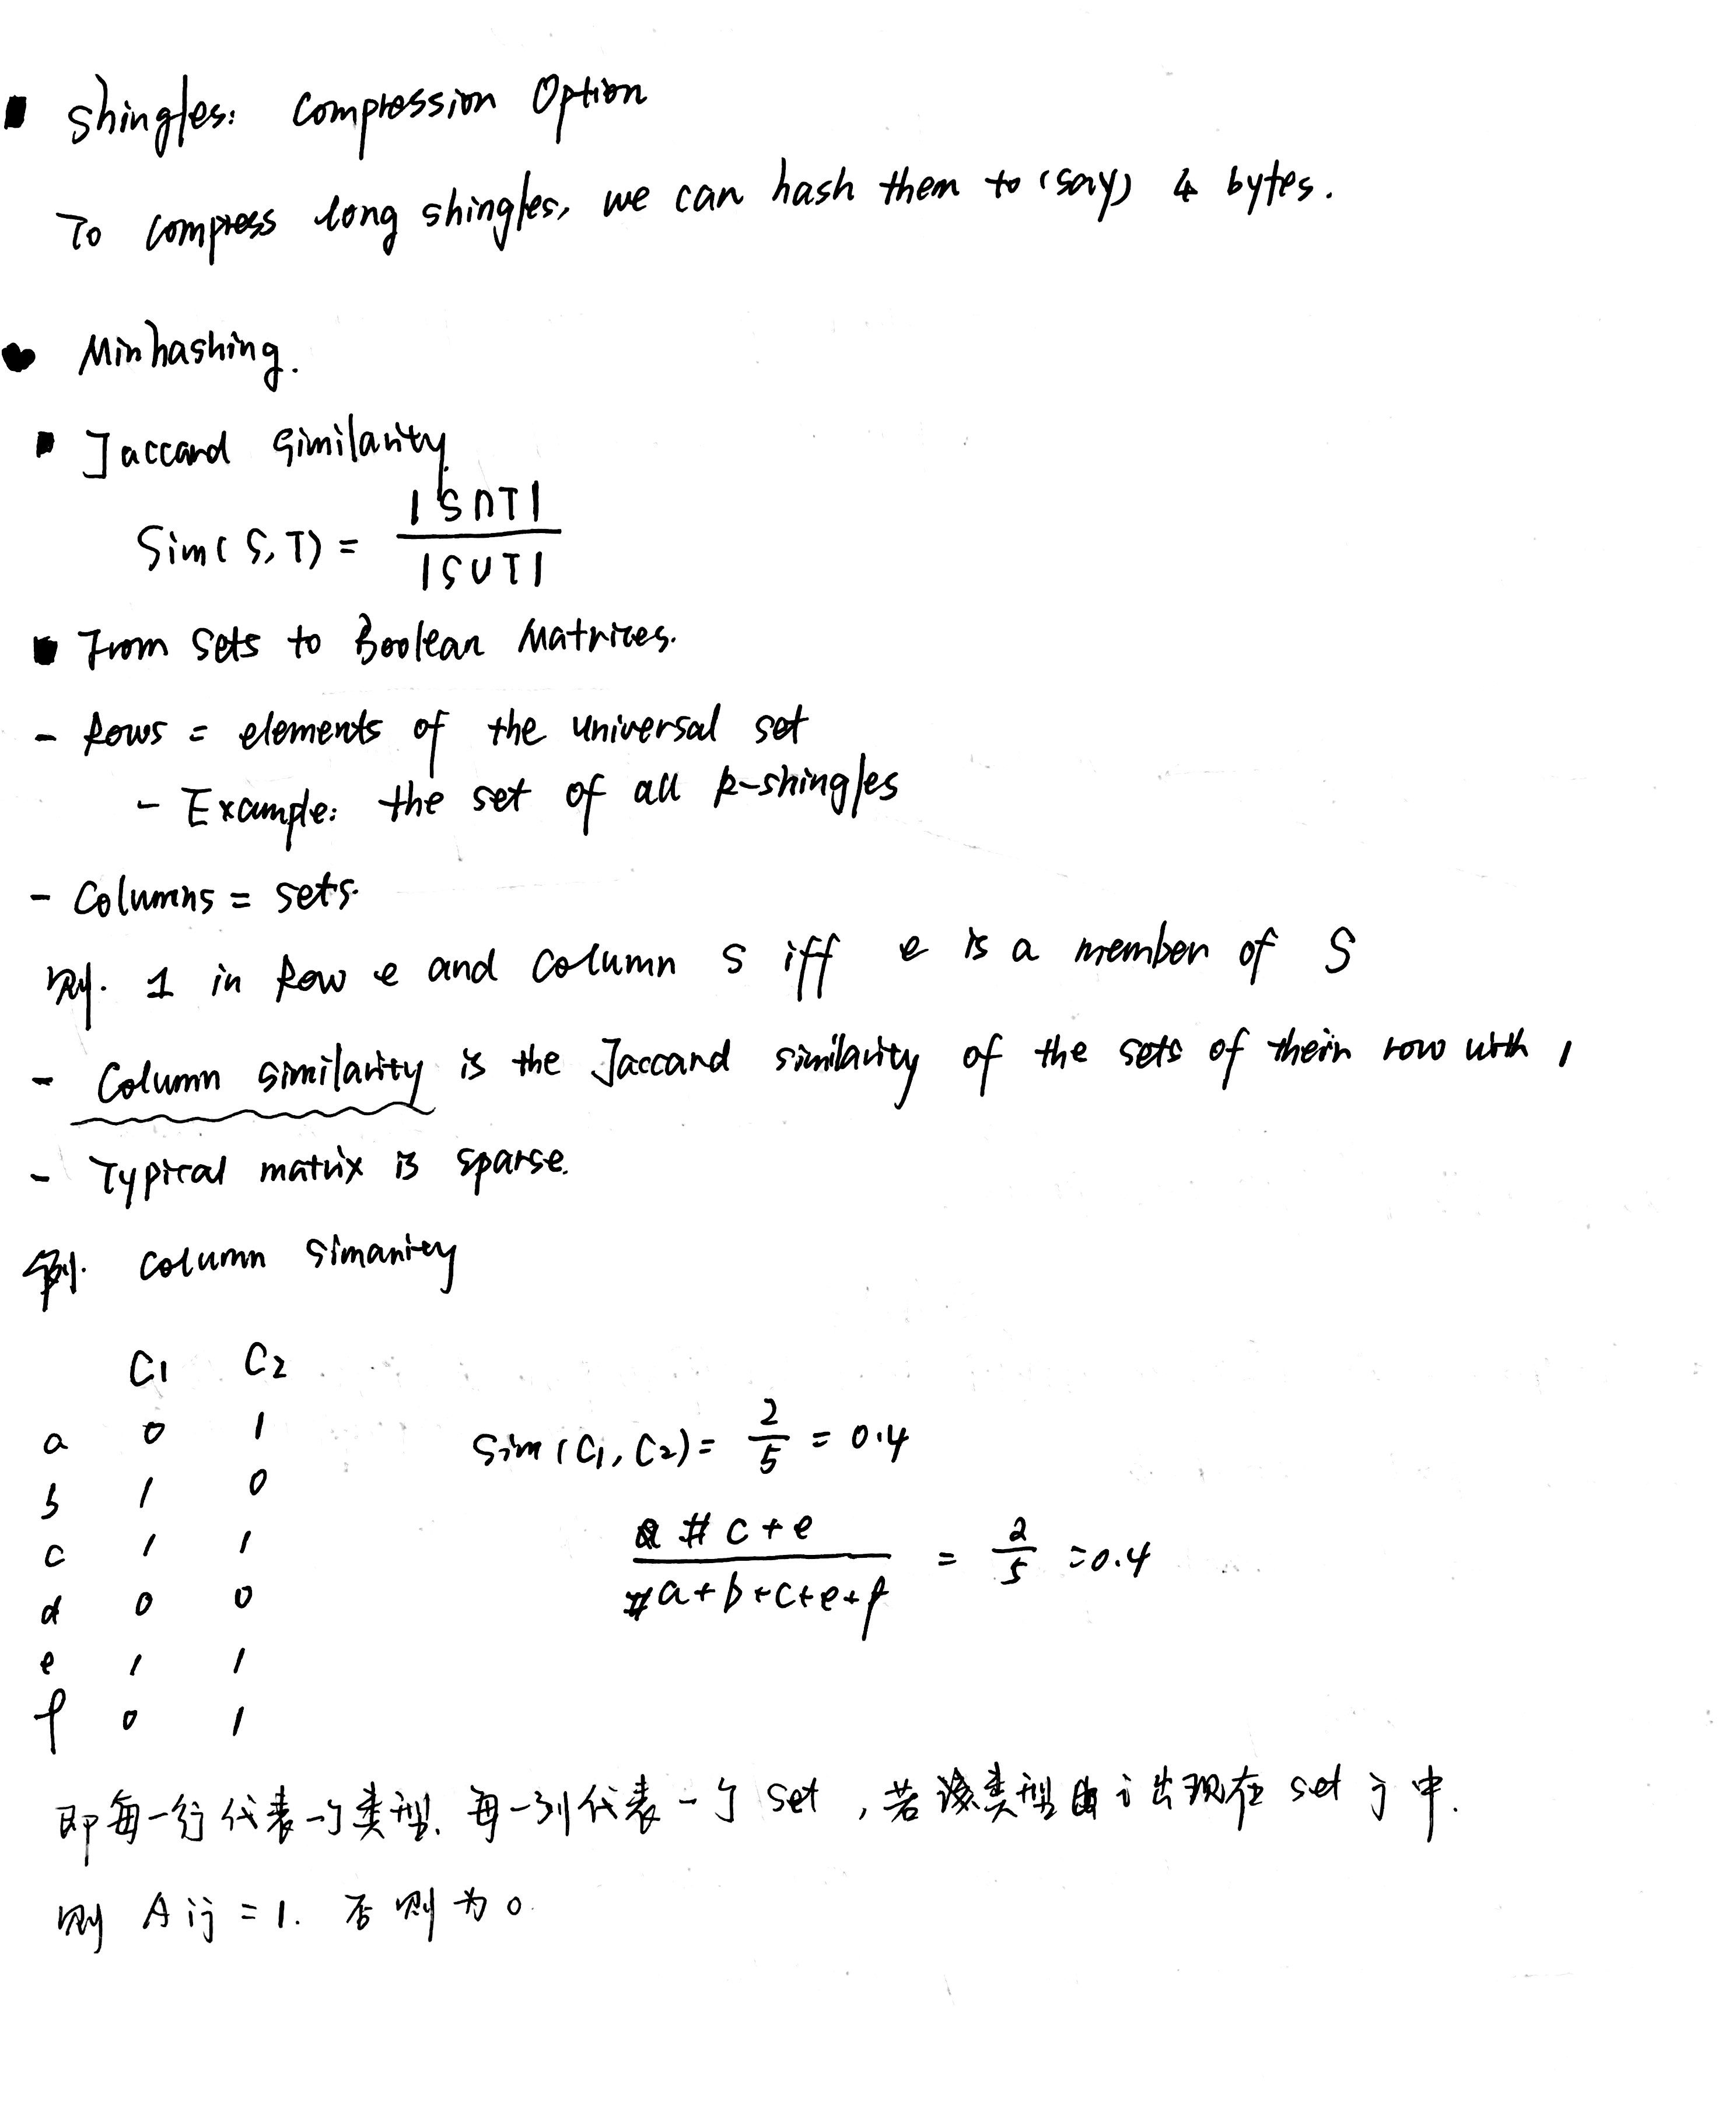 ■ Shingles: Compression Option
To compress long shingles, we can hash them to (say) 4 bytes.
● Minhashing.
■ Jaccard Similarity.
Sim(S,T) = |S∩T| / |S∪T|
■ From Sets to Boolean Matrices.
- Rows = elements of the universal set
- Example: the set of all k-shingles
- Columns = sets.
则. 1 in Row e and column S iff e is a member of S
- Column similarity is the Jaccard similarity of the sets of their row with 1
- Typical matrix is sparse.
例. column simanity
C1 C2
a 0 1
b 1 0
c 1 1
d 0 0
e 1 1
f 0 1
Sim(C1, C2) = 2/5 = 0.4
# c+e / #a+b+c+e+f = 2/5 = 0.4
即每一行代表一个类型. 每一列代表一个 set ,若该类型 i 出现在 set j 中.
则 Aij = 1. 否则为0.